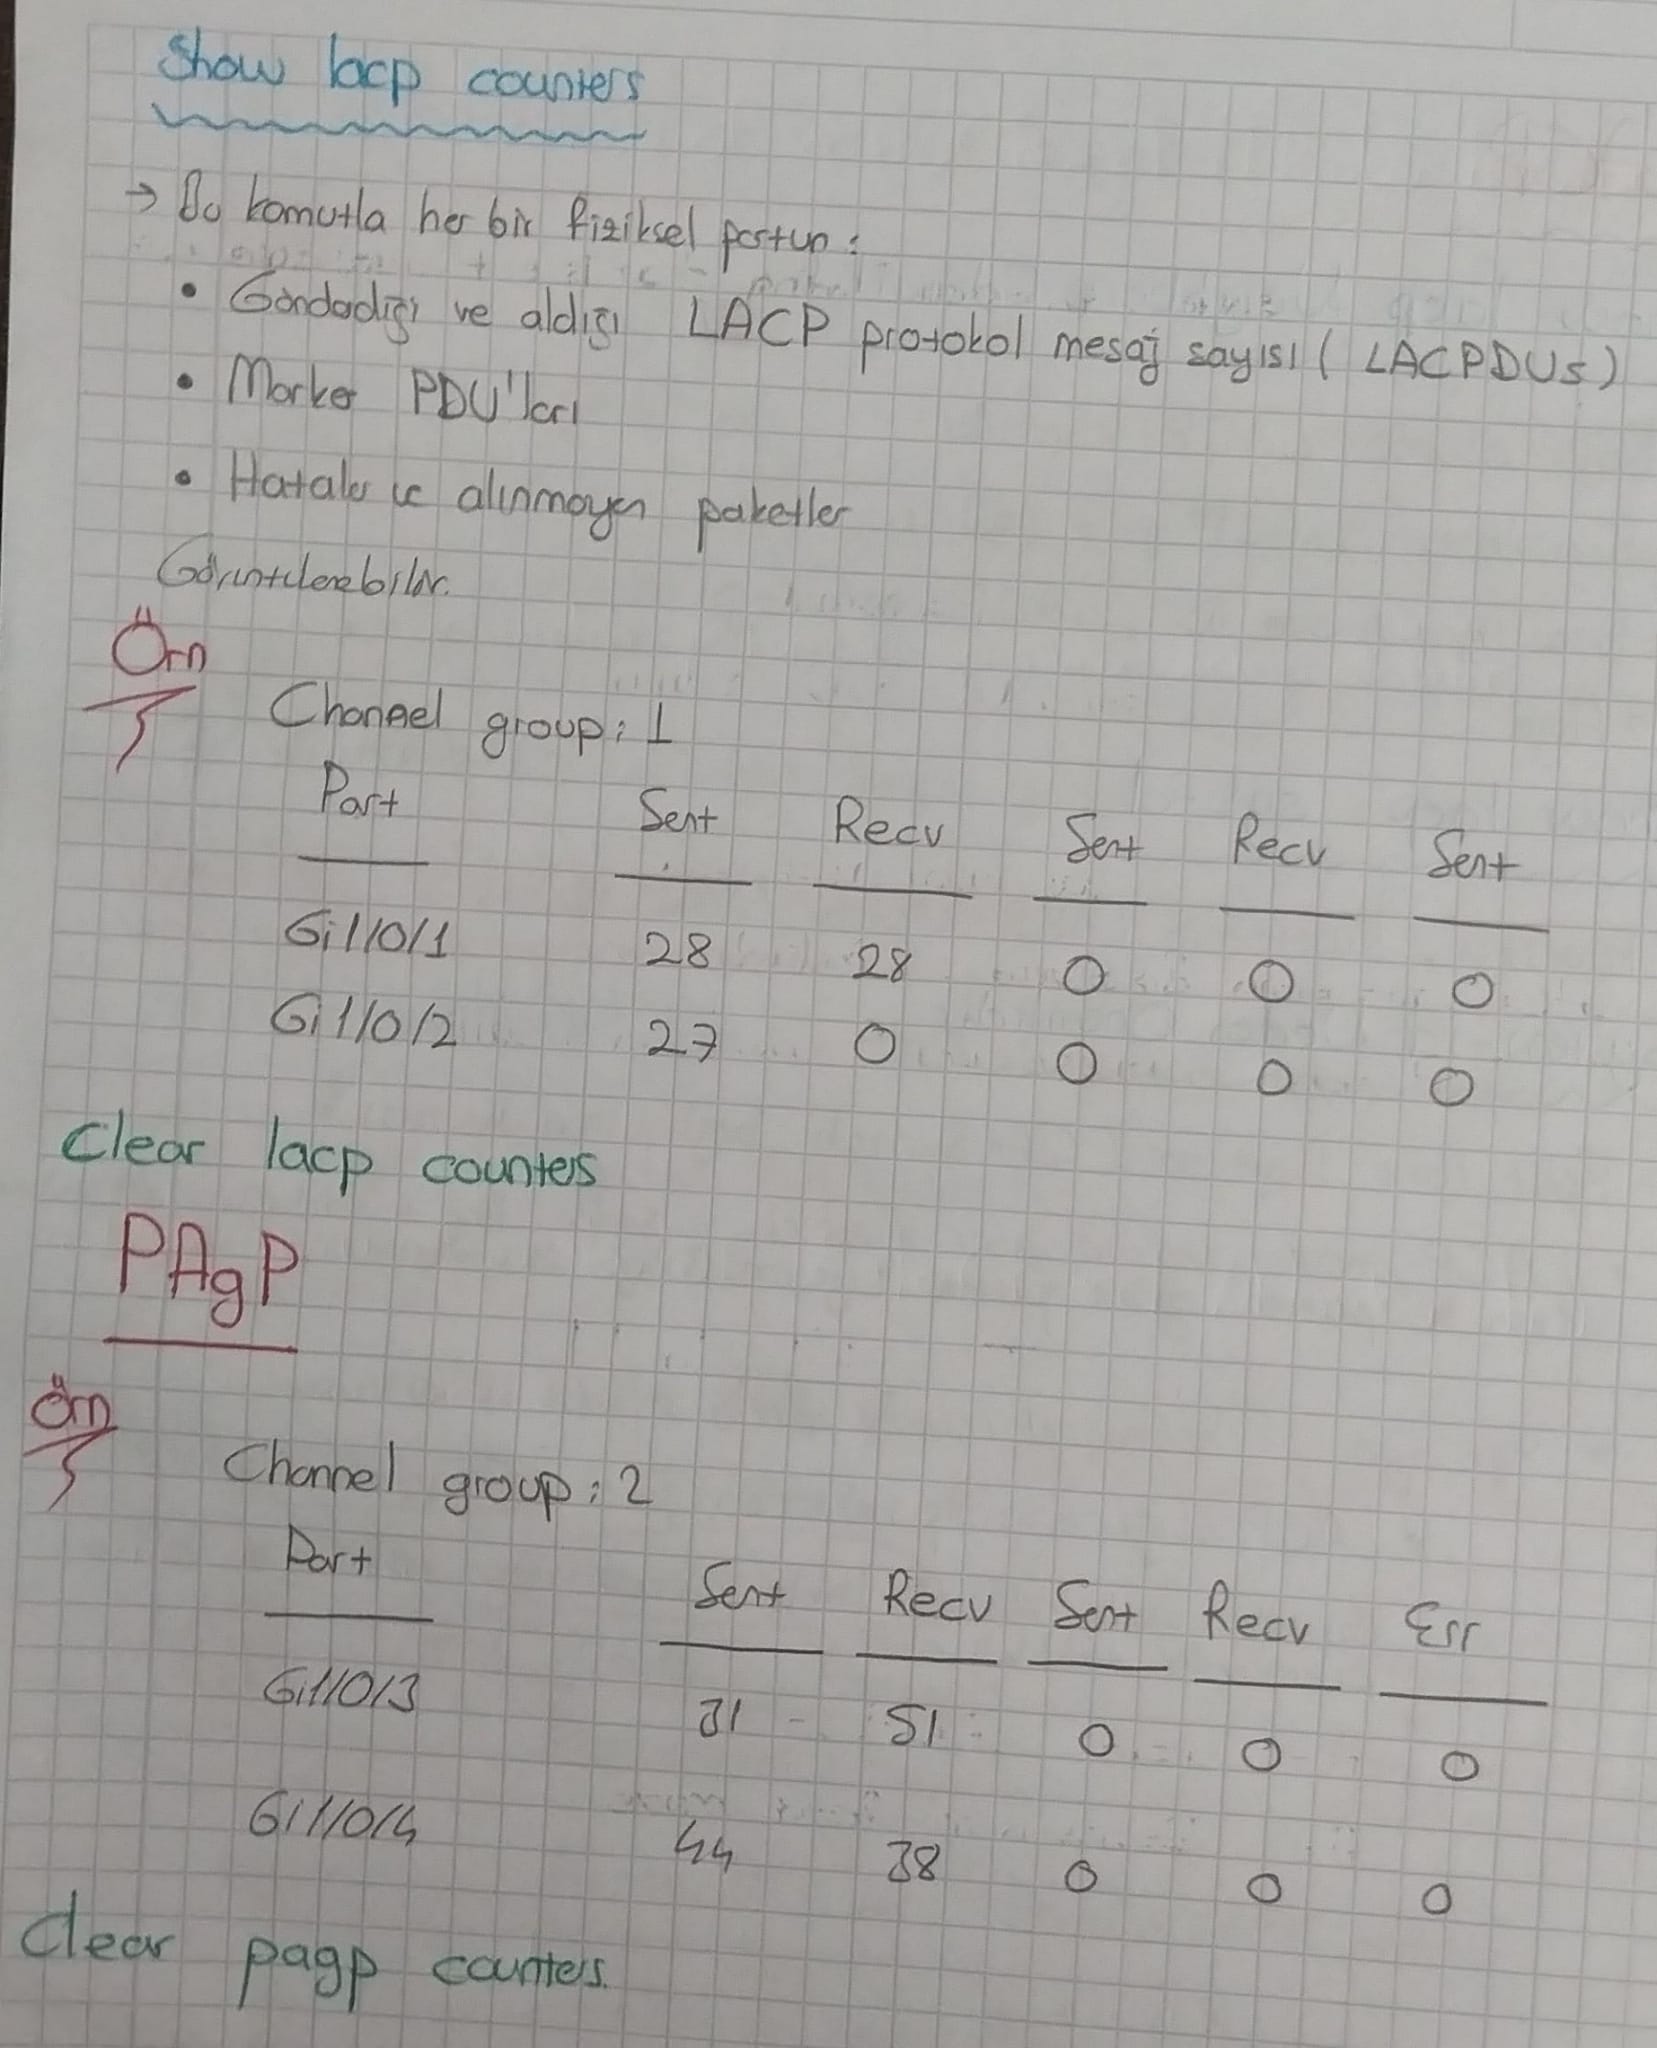 Show lacp counters
→ Bu komutla her bir fiziksel portun :
• Gönderdiği ve aldığı LACP protokol mesaj sayısı ( LACPDUs )
• Marker PDU'ları
• Hatalı ve alınmayan paketler
Görüntülenebilir.
Örn
Channel group : 1
Port Sent Recv Sent Recv Sent
Gi1/0/1 28 28 0 0 0
Gi1/0/2 27 0 0 0 0
Clear lacp counters
PAgP
Örn
Channel group : 2
Port Sent Recv Sent Recv Err
Gi1/0/3 31 51 0 0 0
Gi1/0/4 44 38 0 0 0
Clear pagp counters.